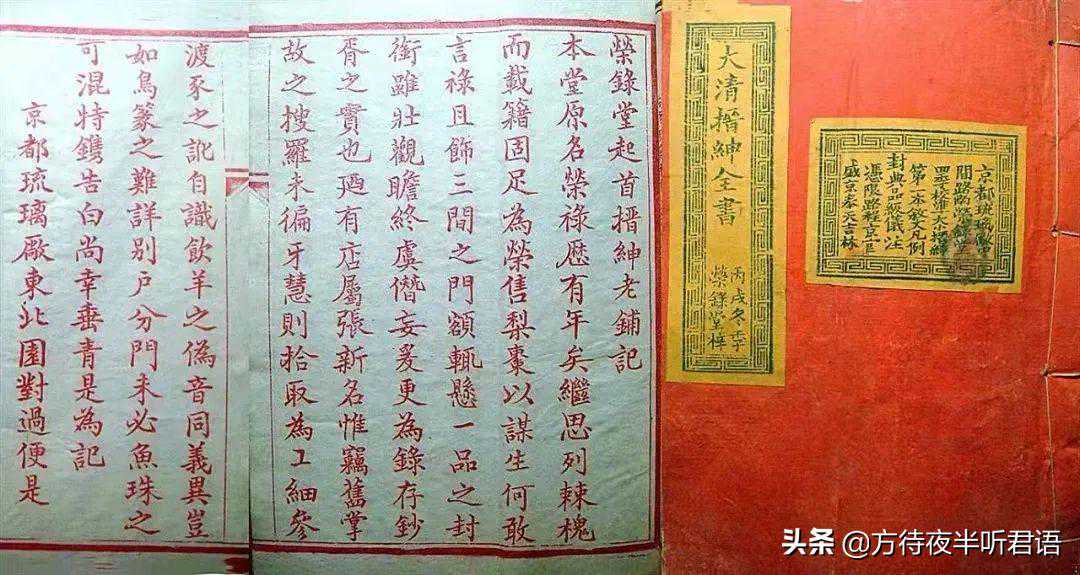 京都琉璃廠
封典品級儀注
憑限路程京
盛京奉天吉林
大清搢紳全書
丙戌冬季
榮錄堂梓
榮錄堂起首搢紳老鋪記
本堂原名榮祿歷有年矣繼思列棘槐
而載籍固足為榮售梨棗以謀生何敢
言祿且飾三間之門額輒懸一品之封
銜雖壯觀瞻終虞僭妄爰更為錄存鈔
胥之實也廼有店屬張新名惟竊舊掌
故之搜羅未徧牙慧則拾取為工細參
渡豕之訛自識飲羊之偽音同義異豈
如鳥篆之難詳別戶分門未必魚珠之
可混特鐫告白尚幸垂青是為記
京都琉璃厰東北園對過便是
头条 @方待夜半听君语